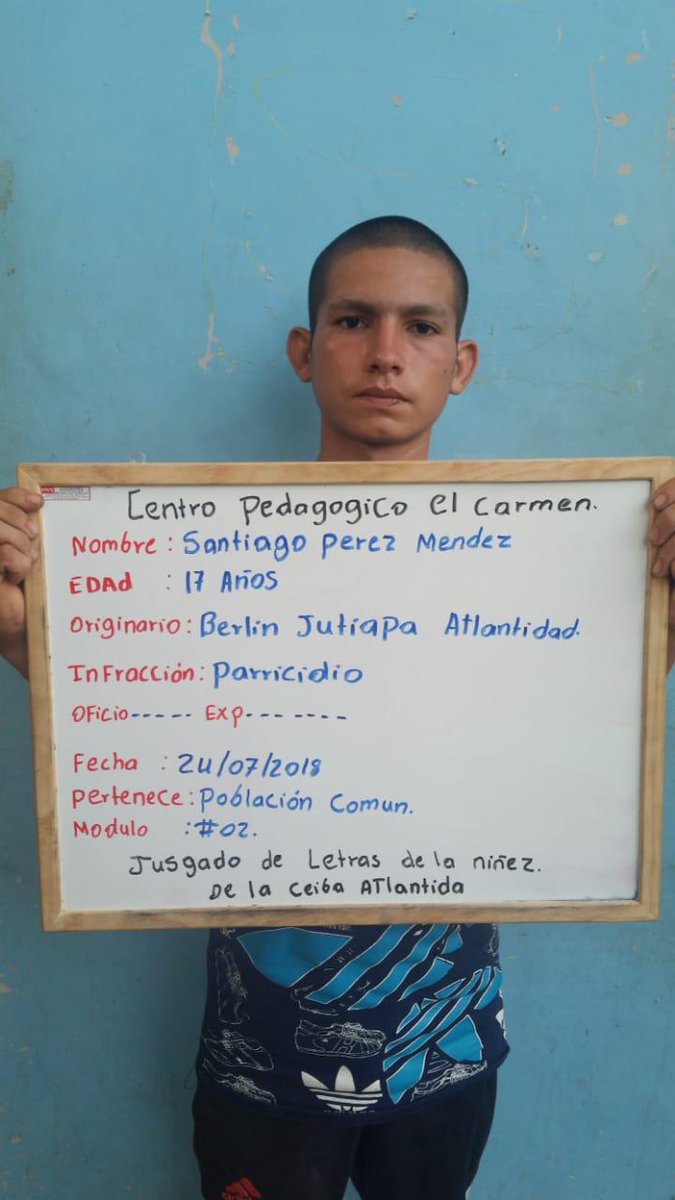 Centro Pedagogico el Carmen.
Nombre : Santiago Perez Mendez
EDAd : 17 Años
Originario : Berlin Jutiapa Atlantidad.
InFracción : Parricidio
OFicio----- Exp--------
Fecha : 24/07/2018
Pertenece : Población Comun.
Modulo : #02.
Jusgado de Letras de la niñez.
De la Ceiba ATlantida
adidas